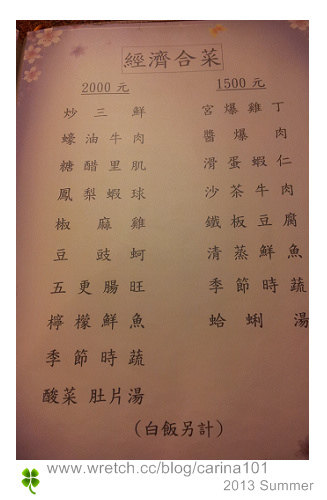 經濟合菜
2000 元
炒三鮮
蠔油牛肉
糖醋里肌
鳳梨蝦球
椒麻雞
豆豉蚵
五更腸旺
檸檬鮮魚
季節時蔬
酸菜肚片湯
1500 元
宮爆雞丁
醬爆肉
滑蛋蝦仁
沙茶牛肉
鐵板豆腐
清蒸鮮魚
季節時蔬
蛤蜊湯
(白飯另計)
www.wretch.cc/blog/carina101
2013 Summer